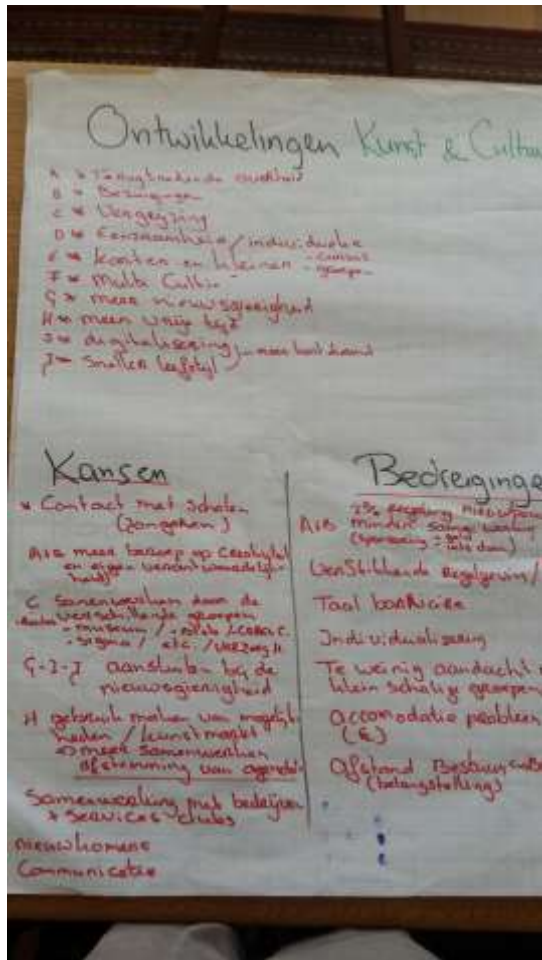 Ontwikkelingen Kunst & Cultuu
A * Terugtredende overheid
B * Bezuinigingen
C * Vergrijzing
D * Eenzaamheid / individualie
E * Kosten en - cursus
- groepen
F * Multi Cultie
G * meer nieuwsgierigheid
H * meer vrije tijd
I * digitalisering
J * Sneller leefstijl
Kansen
* Contact met scholen
(jongeren)
A+B meer beroep op Creativiteit
en eigen verantwoordelijk-
heid
C Samenwerken door de
verschillende groepen
- museum /
- Sigma / etc. / verzorg H.
G-I-J aansluiten bij de
nieuwsgierigheid
H gebruik maken van mogelijk
heden / kunstmarkt
=> meer samenwerken
afstemming van agenda
Samenwerking met bedrijven
* Services clubs
nieuwkomers
Communicatie
Bedreiginge
2% Regeling nieuwbouw
A+B minder
(sponsoring = geld
Verstikkende Regelgevin /
Taal barrière
Individualisering
Te weinig aandacht
klein schalige groepen
accomodatie probleem
(E)
Afstand Bestuur
(belangstelling)